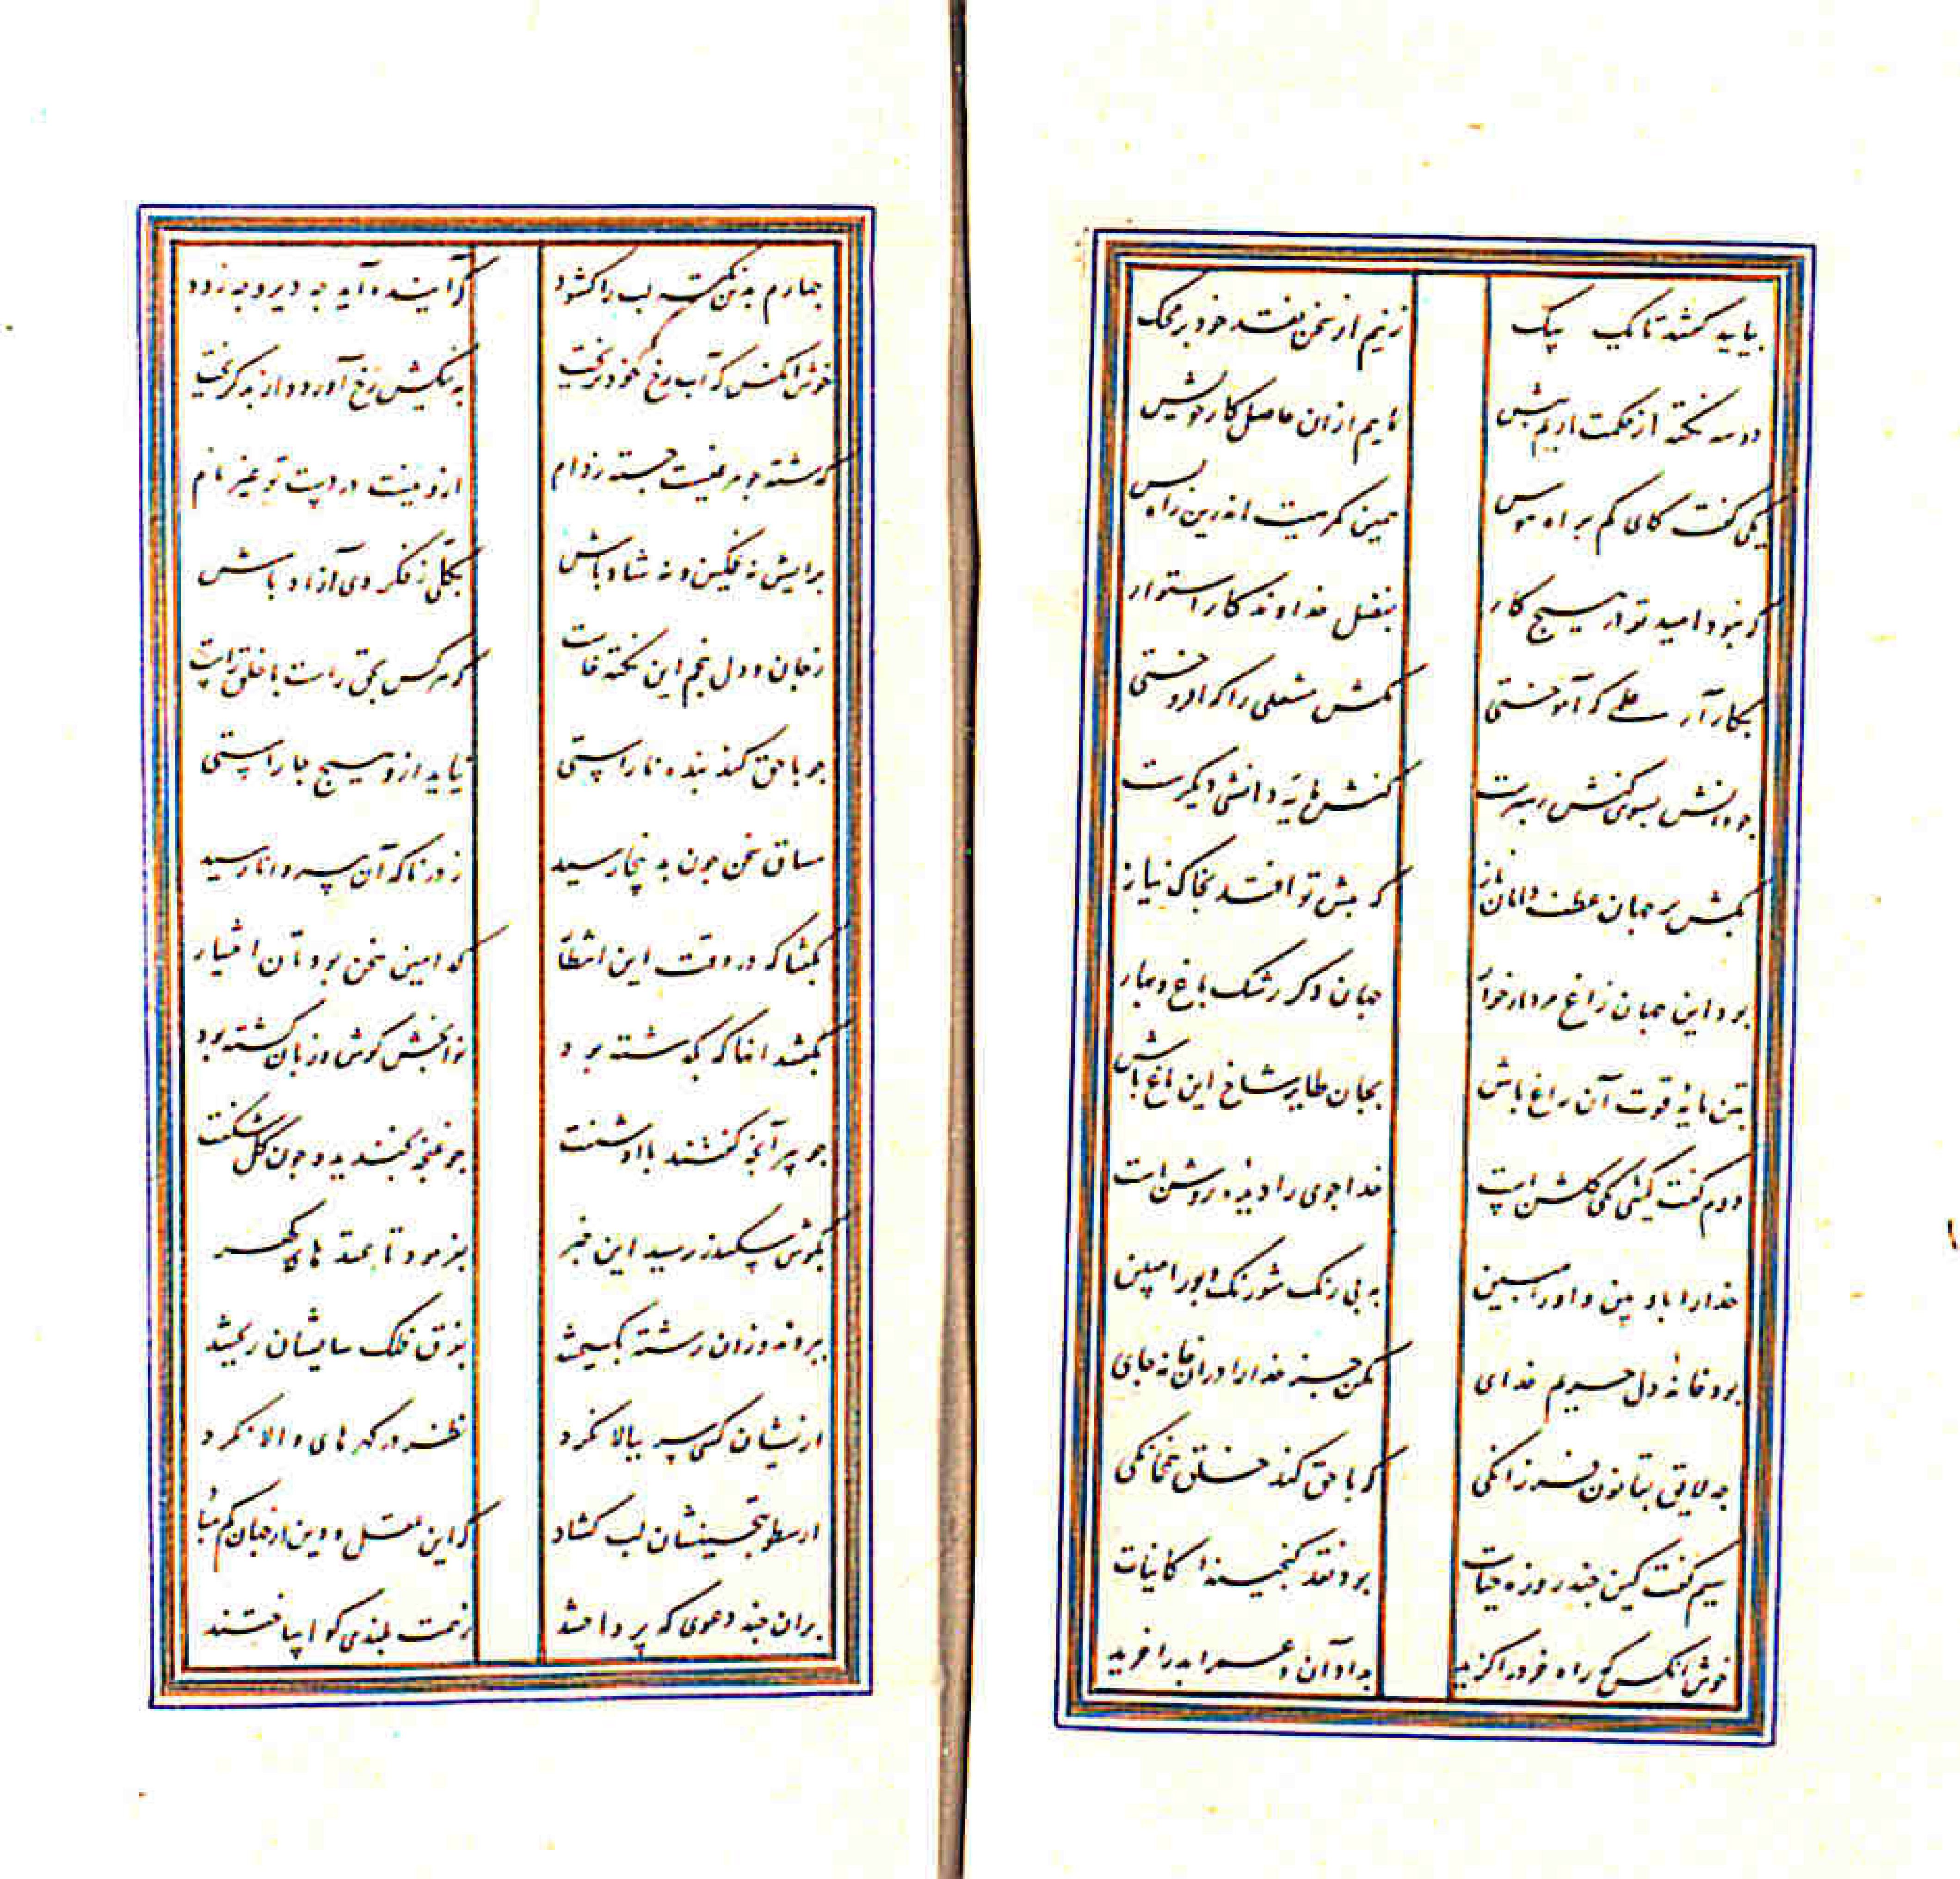 بیایید گفتند تا یک بیک زنیم از سخن نقد خود بر محک
دو سه نکته از حکمت آریم پیش نماییم ازان حاصل کار خویش
یکی گفت کای کم براه هوس همین مکرمت اندرین راه بس
که نبود امید تو از هیچ کار بفضل خداوندکار استوار
بکار آر علمی که آموختی مکش مشعلی را که افروختی
چو دانش بسوی کنش رهبرست کنش مایهٔ دانشی دیگرست
مکش بر جهان عطف دامان ناز که پیش تو افتد بخاک نیاز
بود این جهان زاغ مردار خوار جهان دگر رشک باغ و بهار
بتن مایهٔ قوت آن زاغ باش بجان طایر شاخ این باغ باش
دوم گفت گیتی یکی گلشن است خداجوی را دیده روشن است
خدا را بباد مبین داور مبین به بی رنگ شو رنگ او را مبین
بود خانهٔ دل حریم خدای مکن جز خدا را دران خانه جای
چه لایق بقانون فرزانگی که با حق کند خلق همخانگی
سیم گفت کین چند روزه حیات بود نقد گنجینهٔ کاینات
خوش آنکس که راه خرد را گزید بداد آن و عمر ابد را خرید
چهارم بدین نکته لب را گشود که آینده آید چه دیر و چه زود
خوش آنکس که آب رخ خود نریخت به نیکیش رخ آورد و از بد گریخت
گذشته چو مرغیست جسته ز دام ازو نیست در دست تو غیر نام
برایش نه غمگین و نه شاد باش بکلی ز فکر وی آزاد باش
ز جان و دل پنجم این نکته خاست که هر کس بحق راست با خلق راست
چو با حق کند بنده ناراستی نیاید ازو هیچ جا راستی
مساق سخن چون بدینجا رسید ز در ناگه آن پیر دانا رسید
بگفتا که در وقت این انتظار که امین سخن بودتان اختیار
بگفتند آنها که بگذشته بود نوابخش گوش و زبان گشته بود
چو پیر آنچه گفتند با او شنفت چو غنچه بخندید و چون گل شکفت
بگوش سکندر رسید این خبر بفرمود تا عقدهای گهر
ببردند و زان رشته بگسیختند بفرق فلک سایشان ریختند
ازیشان کسی سر ببالا نکرد نظر در گهرهای والا نکرد
ارسطو بتحسینشان لب گشاد که این عقل و دین از جهان کم مباد
بران چند دعوی که پرداختند ز همت بلندی گواه ساختند